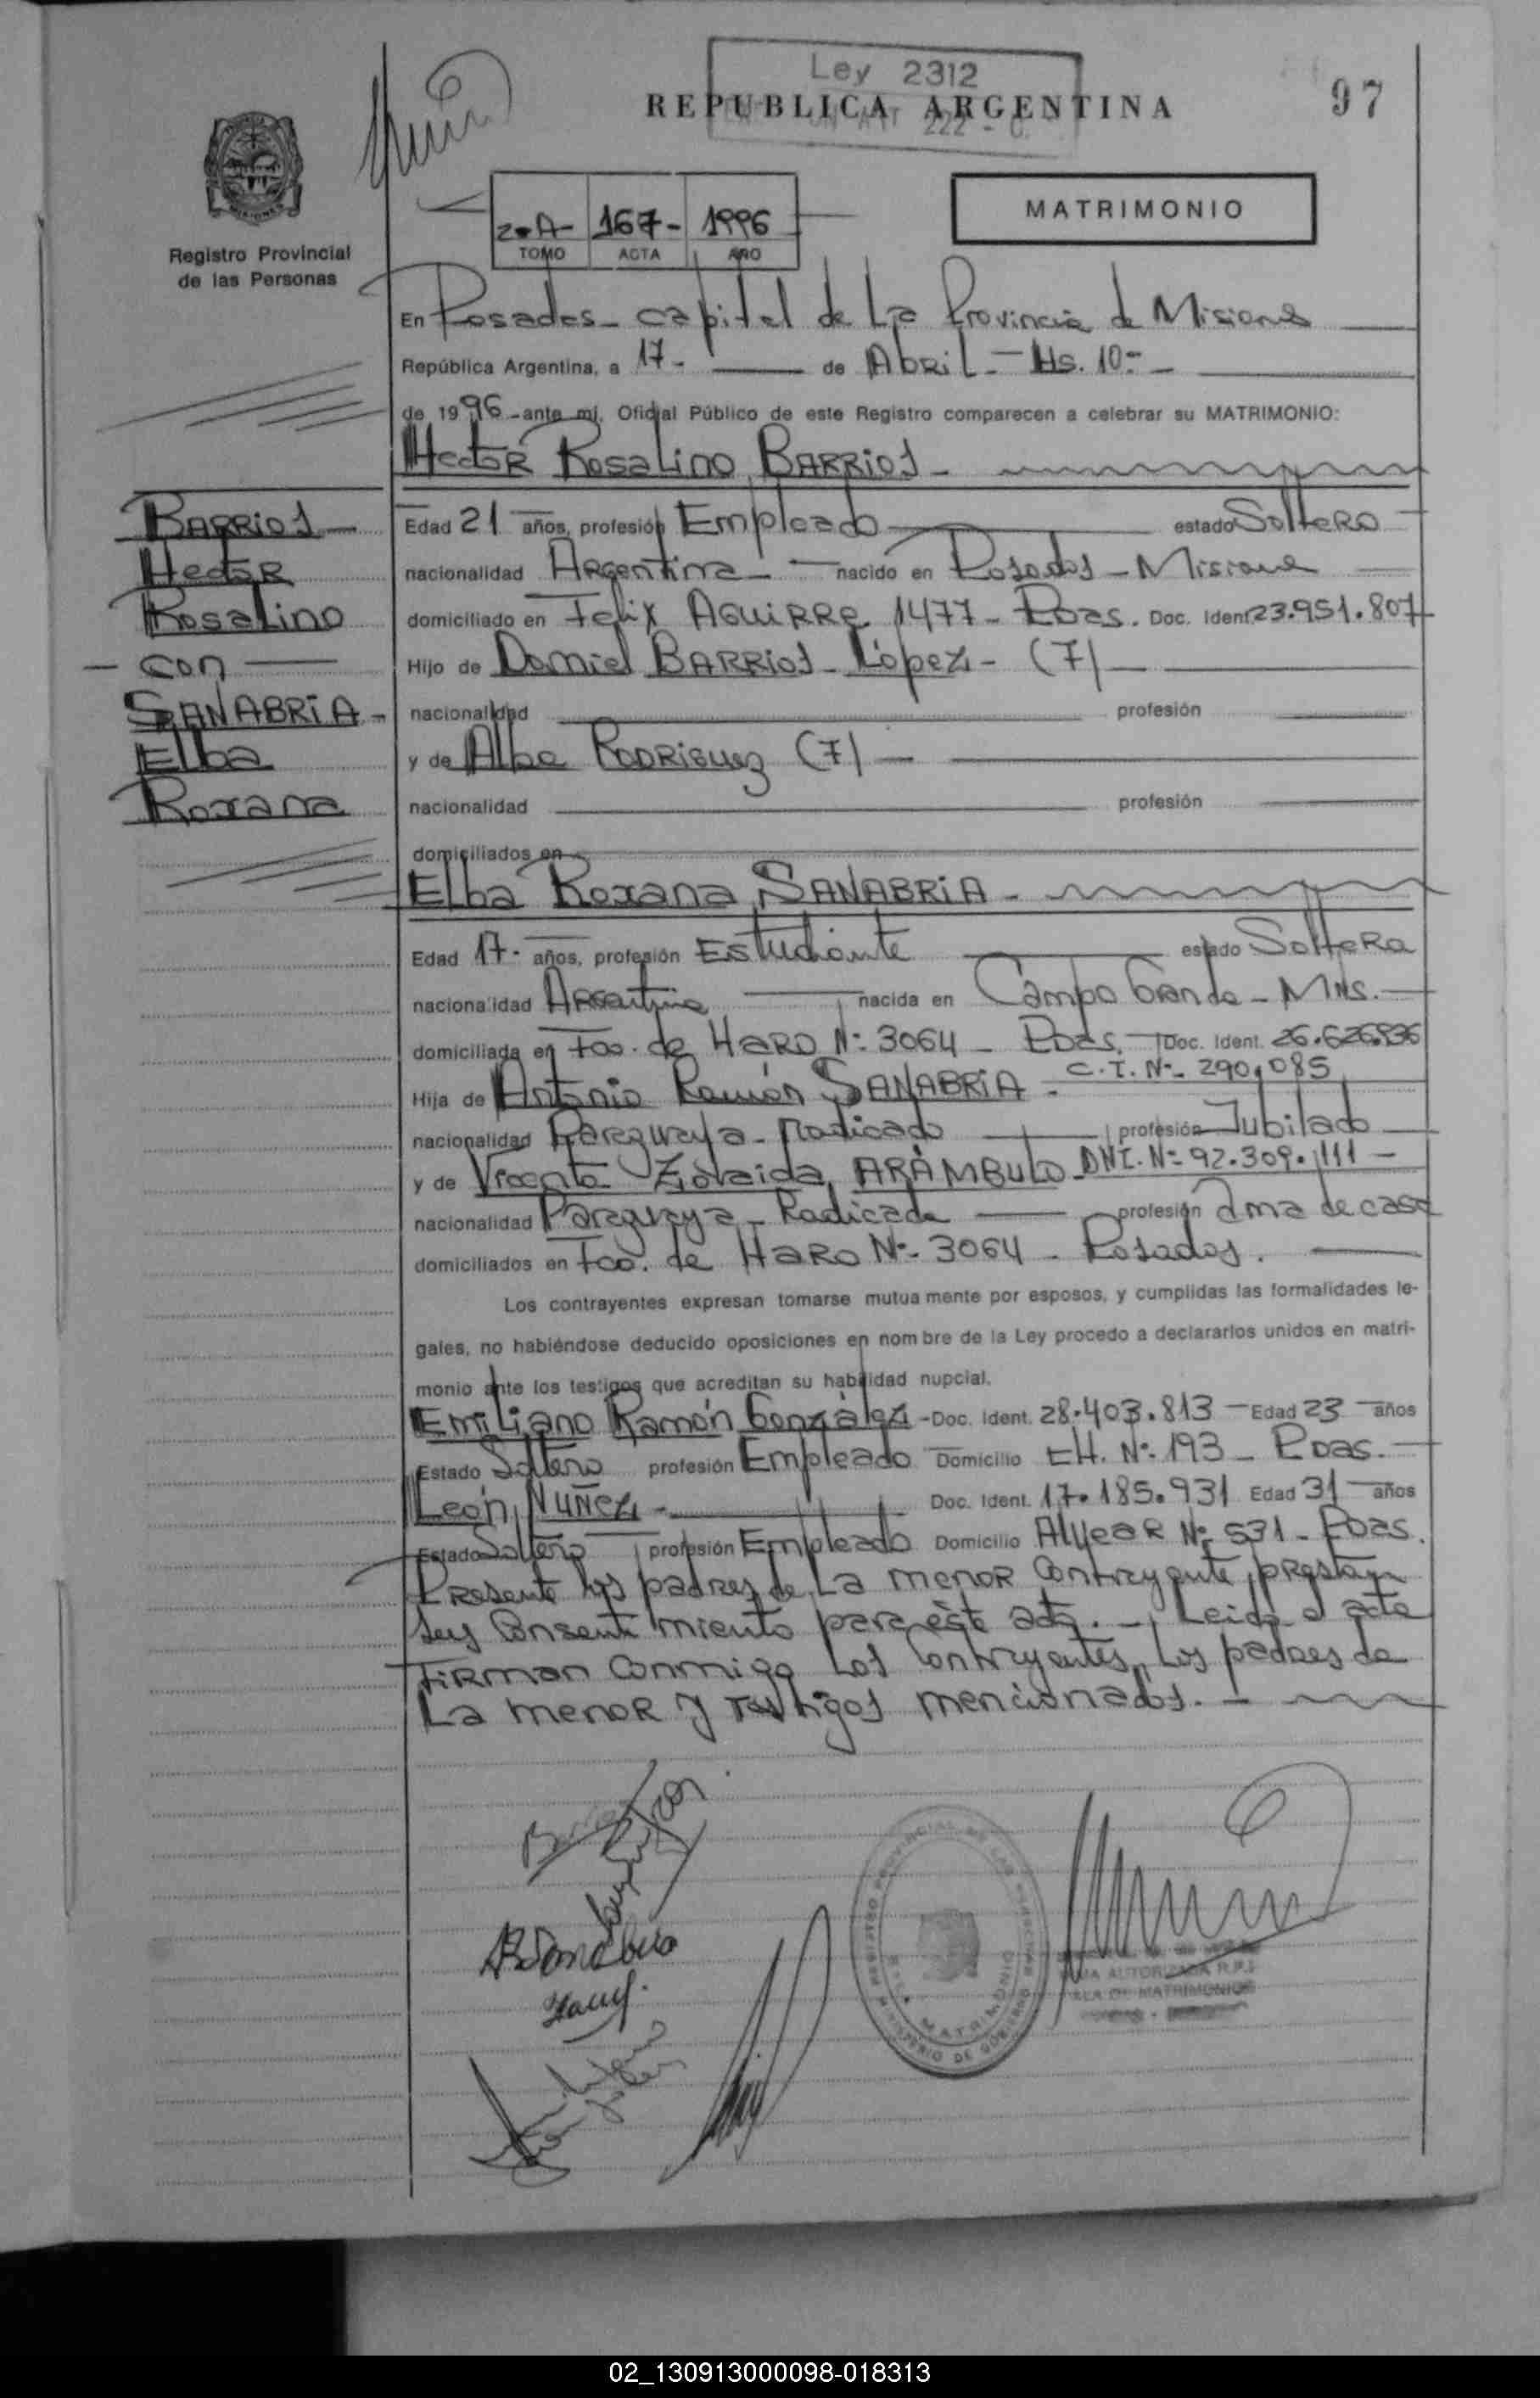 Ley 2312
REPUBLICA ARGENTINA
97
222 - C.
MATRIMONIO
2º A - 167 - 1996
TOMO ACTA AÑO
Registro Provincial
de las Personas
En Posadas - capital de La Provincia de Misiones
República Argentina, a 17 - de Abril - Hs. 10 -
de 1996 - ante mí, Oficial Público de este Registro comparecen a celebrar su MATRIMONIO:
Hector Rosalino BARRIOS -
BARRIOS -
Hector
Rosalino
- con -
SANABRIA -
Elba
Roxana
Edad 21 años, profesión Empleado estado Soltero
nacionalidad Argentina - nacido en Posadas - Misiones
domiciliado en Felix Aguirre 1477 - Pdas. Doc. Ident. 23.951.807
Hijo de Daniel BARRIOS López - (7)
nacionalidad profesión
y de Alba Rodriguez (7) -
nacionalidad profesión
domiciliados en
Elba Roxana SANABRIA -
Edad 17 - años, profesión Estudiante estado Soltera
nacionalidad Argentina nacida en Campo Grande - Mns. -
domiciliada en Fco. de HARO Nº 3064 - Pdas. - Doc. Ident. 26.626.836
C.I. Nº 290.085
Hija de Antonio Ramón SANABRIA -
nacionalidad Paraguaya - Radicado profesión Jubilado
y de Vicenta Zoraida ARAMBULO - DNI. Nº 92.309.111 -
nacionalidad Paraguaya - Radicada profesión Ama de casa
domiciliados en Fco. de HARO Nº 3064 - Posadas.
Los contrayentes expresan tomarse mutuamente por esposos, y cumplidas las formalidades le-
gales, no habiéndose deducido oposiciones en nombre de la Ley procedo a declararlos unidos en matri-
monio ante los testigos que acreditan su habilidad nupcial.
Emiliano Ramón González - Doc. Ident. 28.403.813 - Edad 23 años
Estado Soltero profesión Empleado Domicilio CH. Nº 193 - Pdas. -
León NUÑEZ - Doc. Ident. 17.185.931 Edad 31 años
Estado Soltero profesión Empleado Domicilio Alvear Nº 531 - Pdas.
Presente los padres de La menor Contrayente, prestan
su Consentimiento para este acto. - Leida el acta
Firman Conmigo Los Contrayentes, Los padres de
La menor y Testigos mencionados. -
REGISTRO PROVINCIAL DE LAS PERSONAS
MATRIMONIO
MINISTERIO DE GOBIERNO
FIRMA AUTORIZADA R.P.P.
SALA DE MATRIMONIOS
02_130913000098-018313